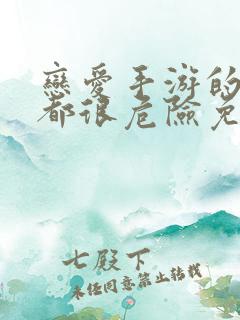 戀愛手游的
都很危險免
七殿下
未經同意禁止轉載